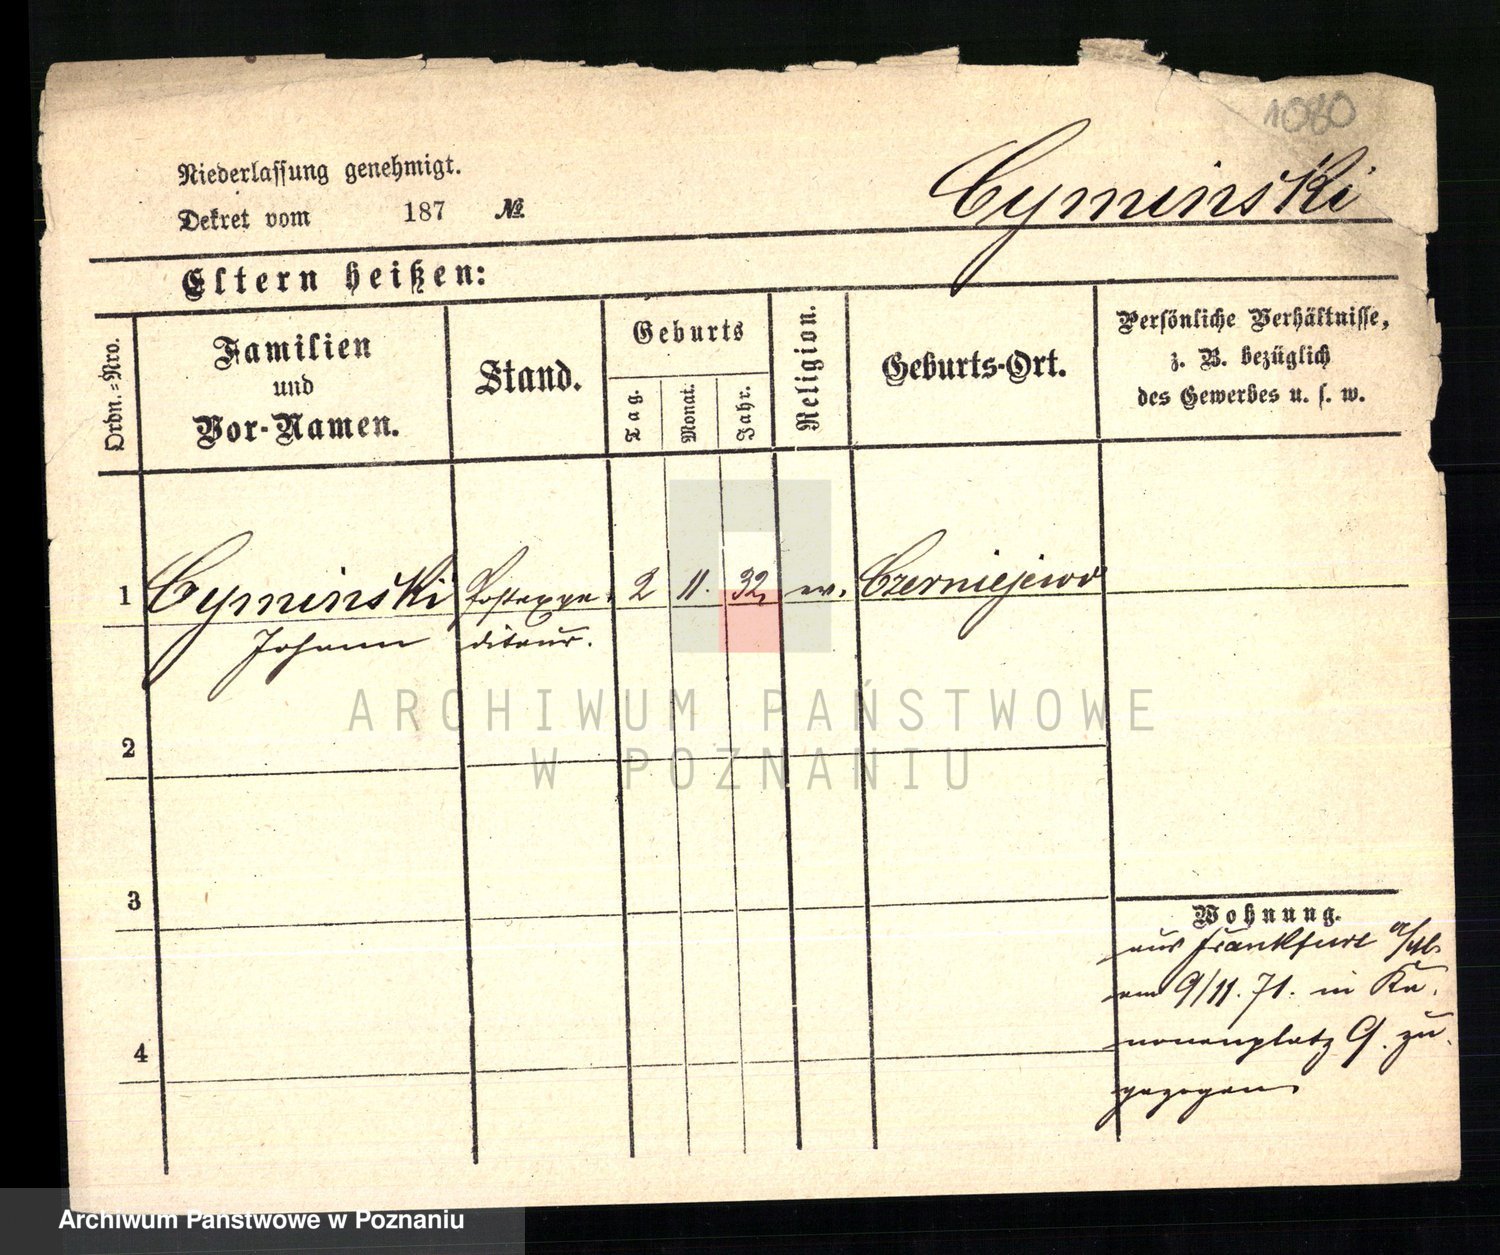 1080
Niederlassung genehmigt.
Dekret vom 187 №
Cyminski
Eltern heißen:
Ordn.=Nro.
Familien
und
Vor-Namen.
Stand.
Geburts
Tag.
Monat.
Jahr.
Religion.
Geburts-Ort.
Persönliche Verhältnisse,
z. B. bezüglich
des Gewerbes u. s. w.
1 Cyminski Postexpe- 2 11. 32, ev. Czerniejewo
Johann diteur.
2
3
4
Wohnung.
aus Frankfurt a/M.
am 9/11. 71. in Ka-
nonenplatz 9. zu-
gezogen
ARCHIWUM PAŃSTWOWE
W POZNANIU
Archiwum Państwowe w Poznaniu